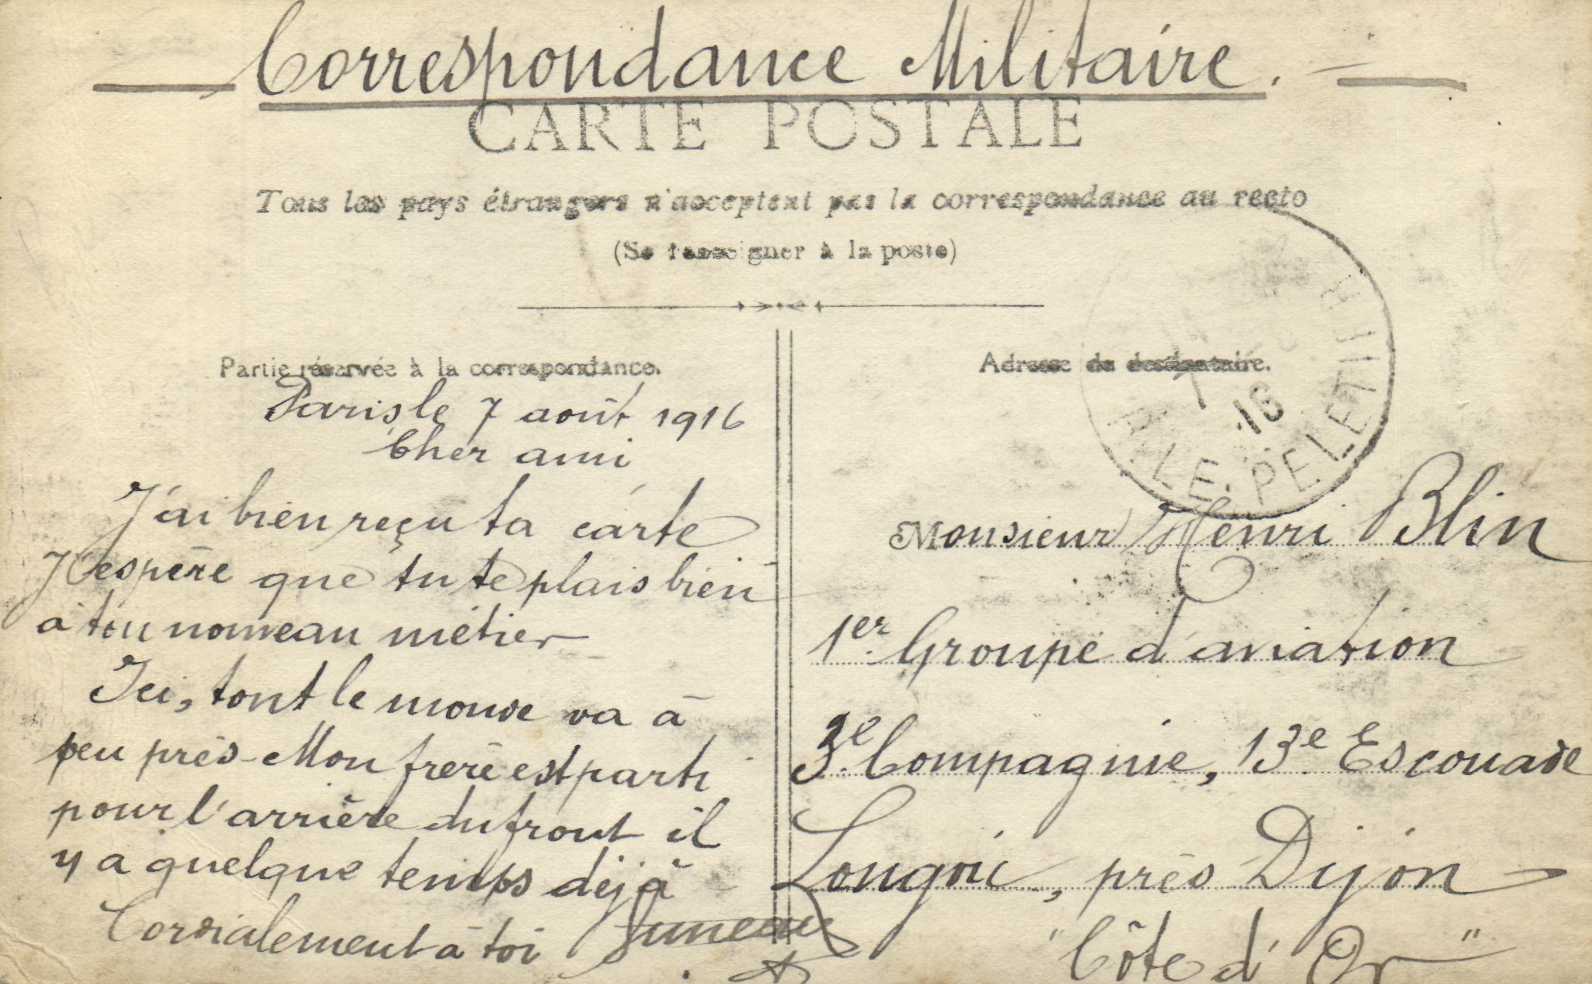 Correspondance Militaire.
CARTE POSTALE
Tous les pays étrangers n'acceptent pas la correspondance au recto
(Se renseigner à la poste)
Partie réservée à la correspondance.
Paris le 7 août 1916
Cher ami
J'ai bien reçu ta carte
J'espère que tu te plais bien
à ton nouveau métier
Ici, tout le monde va à
peu près - Mon frère est parti
pour l'arrière du front il
y a quelque temps déjà
Cordialement à toi
Adresse du destinataire.
7
16
R. LE PELETIER
Monsieur Henri Blin
1er Groupe d'aviation
3e Compagnie, 13e Escouade
Longvic, près Dijon
"Côte d'Or"